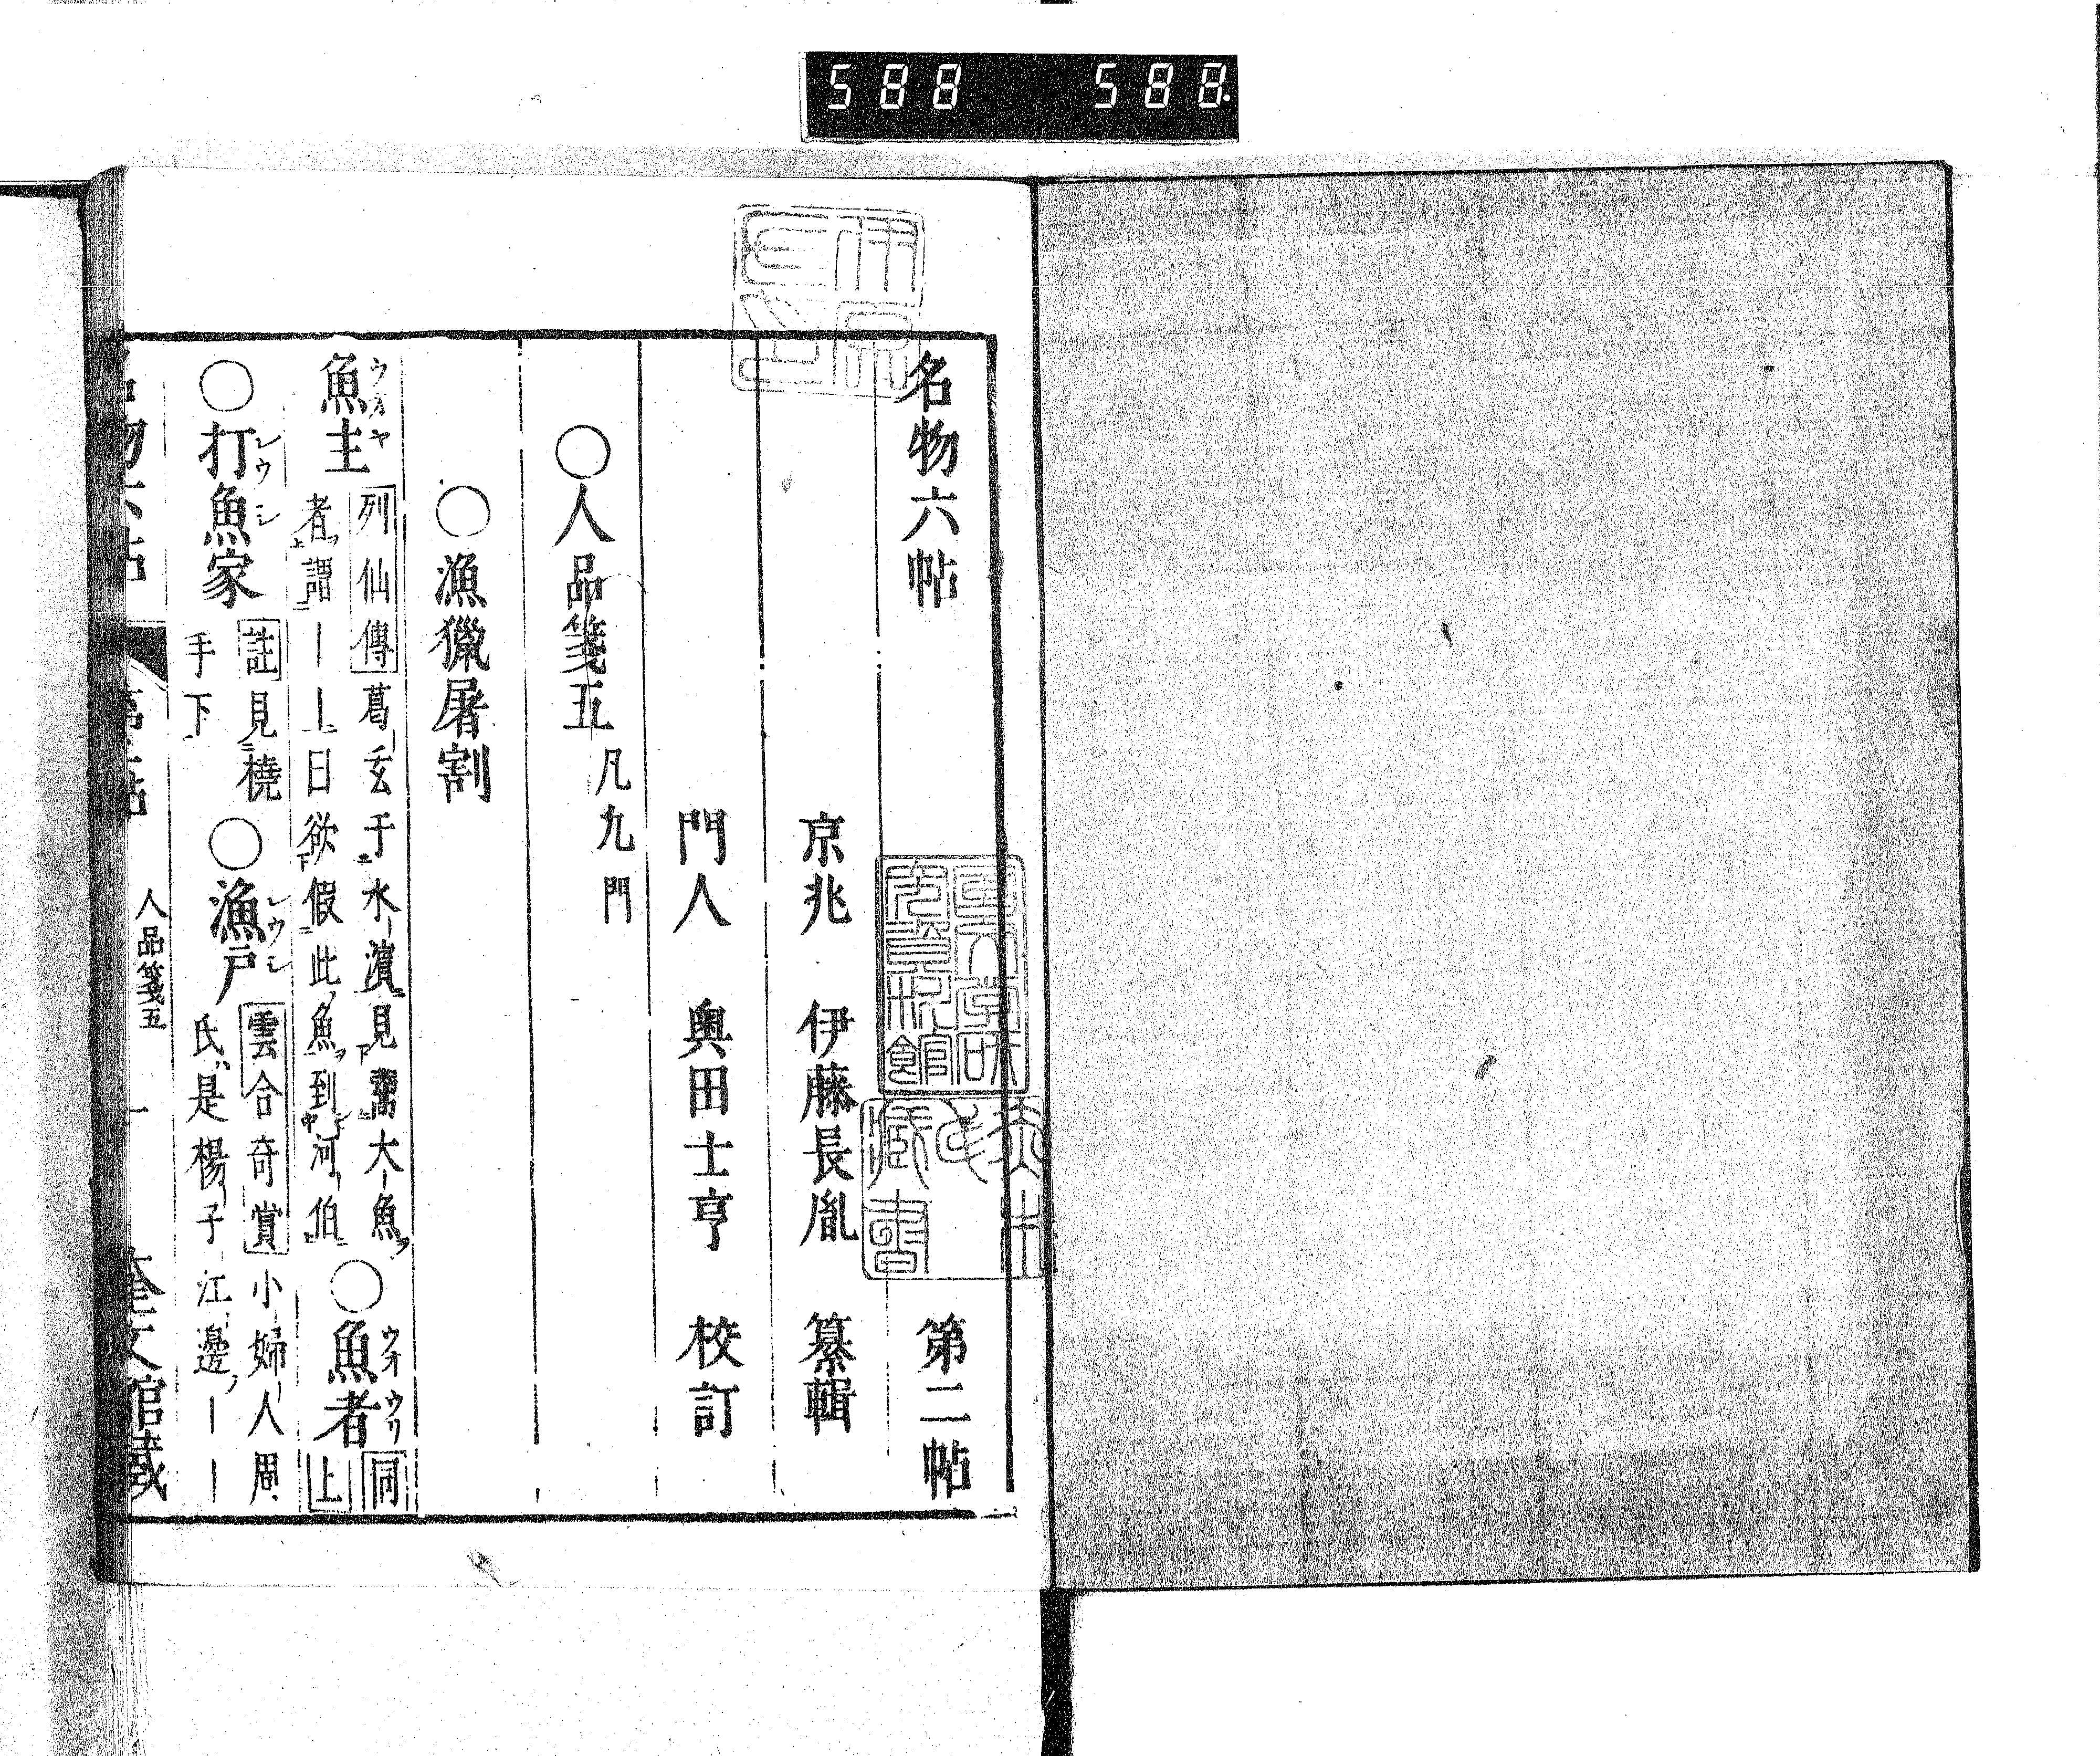 588 588
名物六帖 第二帖
京兆 伊藤長胤 纂輯
門人 奥田士亨 校訂
○人品箋五 凡九門
○漁獵屠割
魚主 ウオヤ 列仙傳葛玄于水濵見鬻大魚
者謂――曰欲假此魚到河伯 ○魚者 ウオウリ 同上
○打魚家 レウシ 註見橈
手下 ○漁戸 レウシ 雲合奇賞小婦人周
氏是楊子江邊――
人品箋五